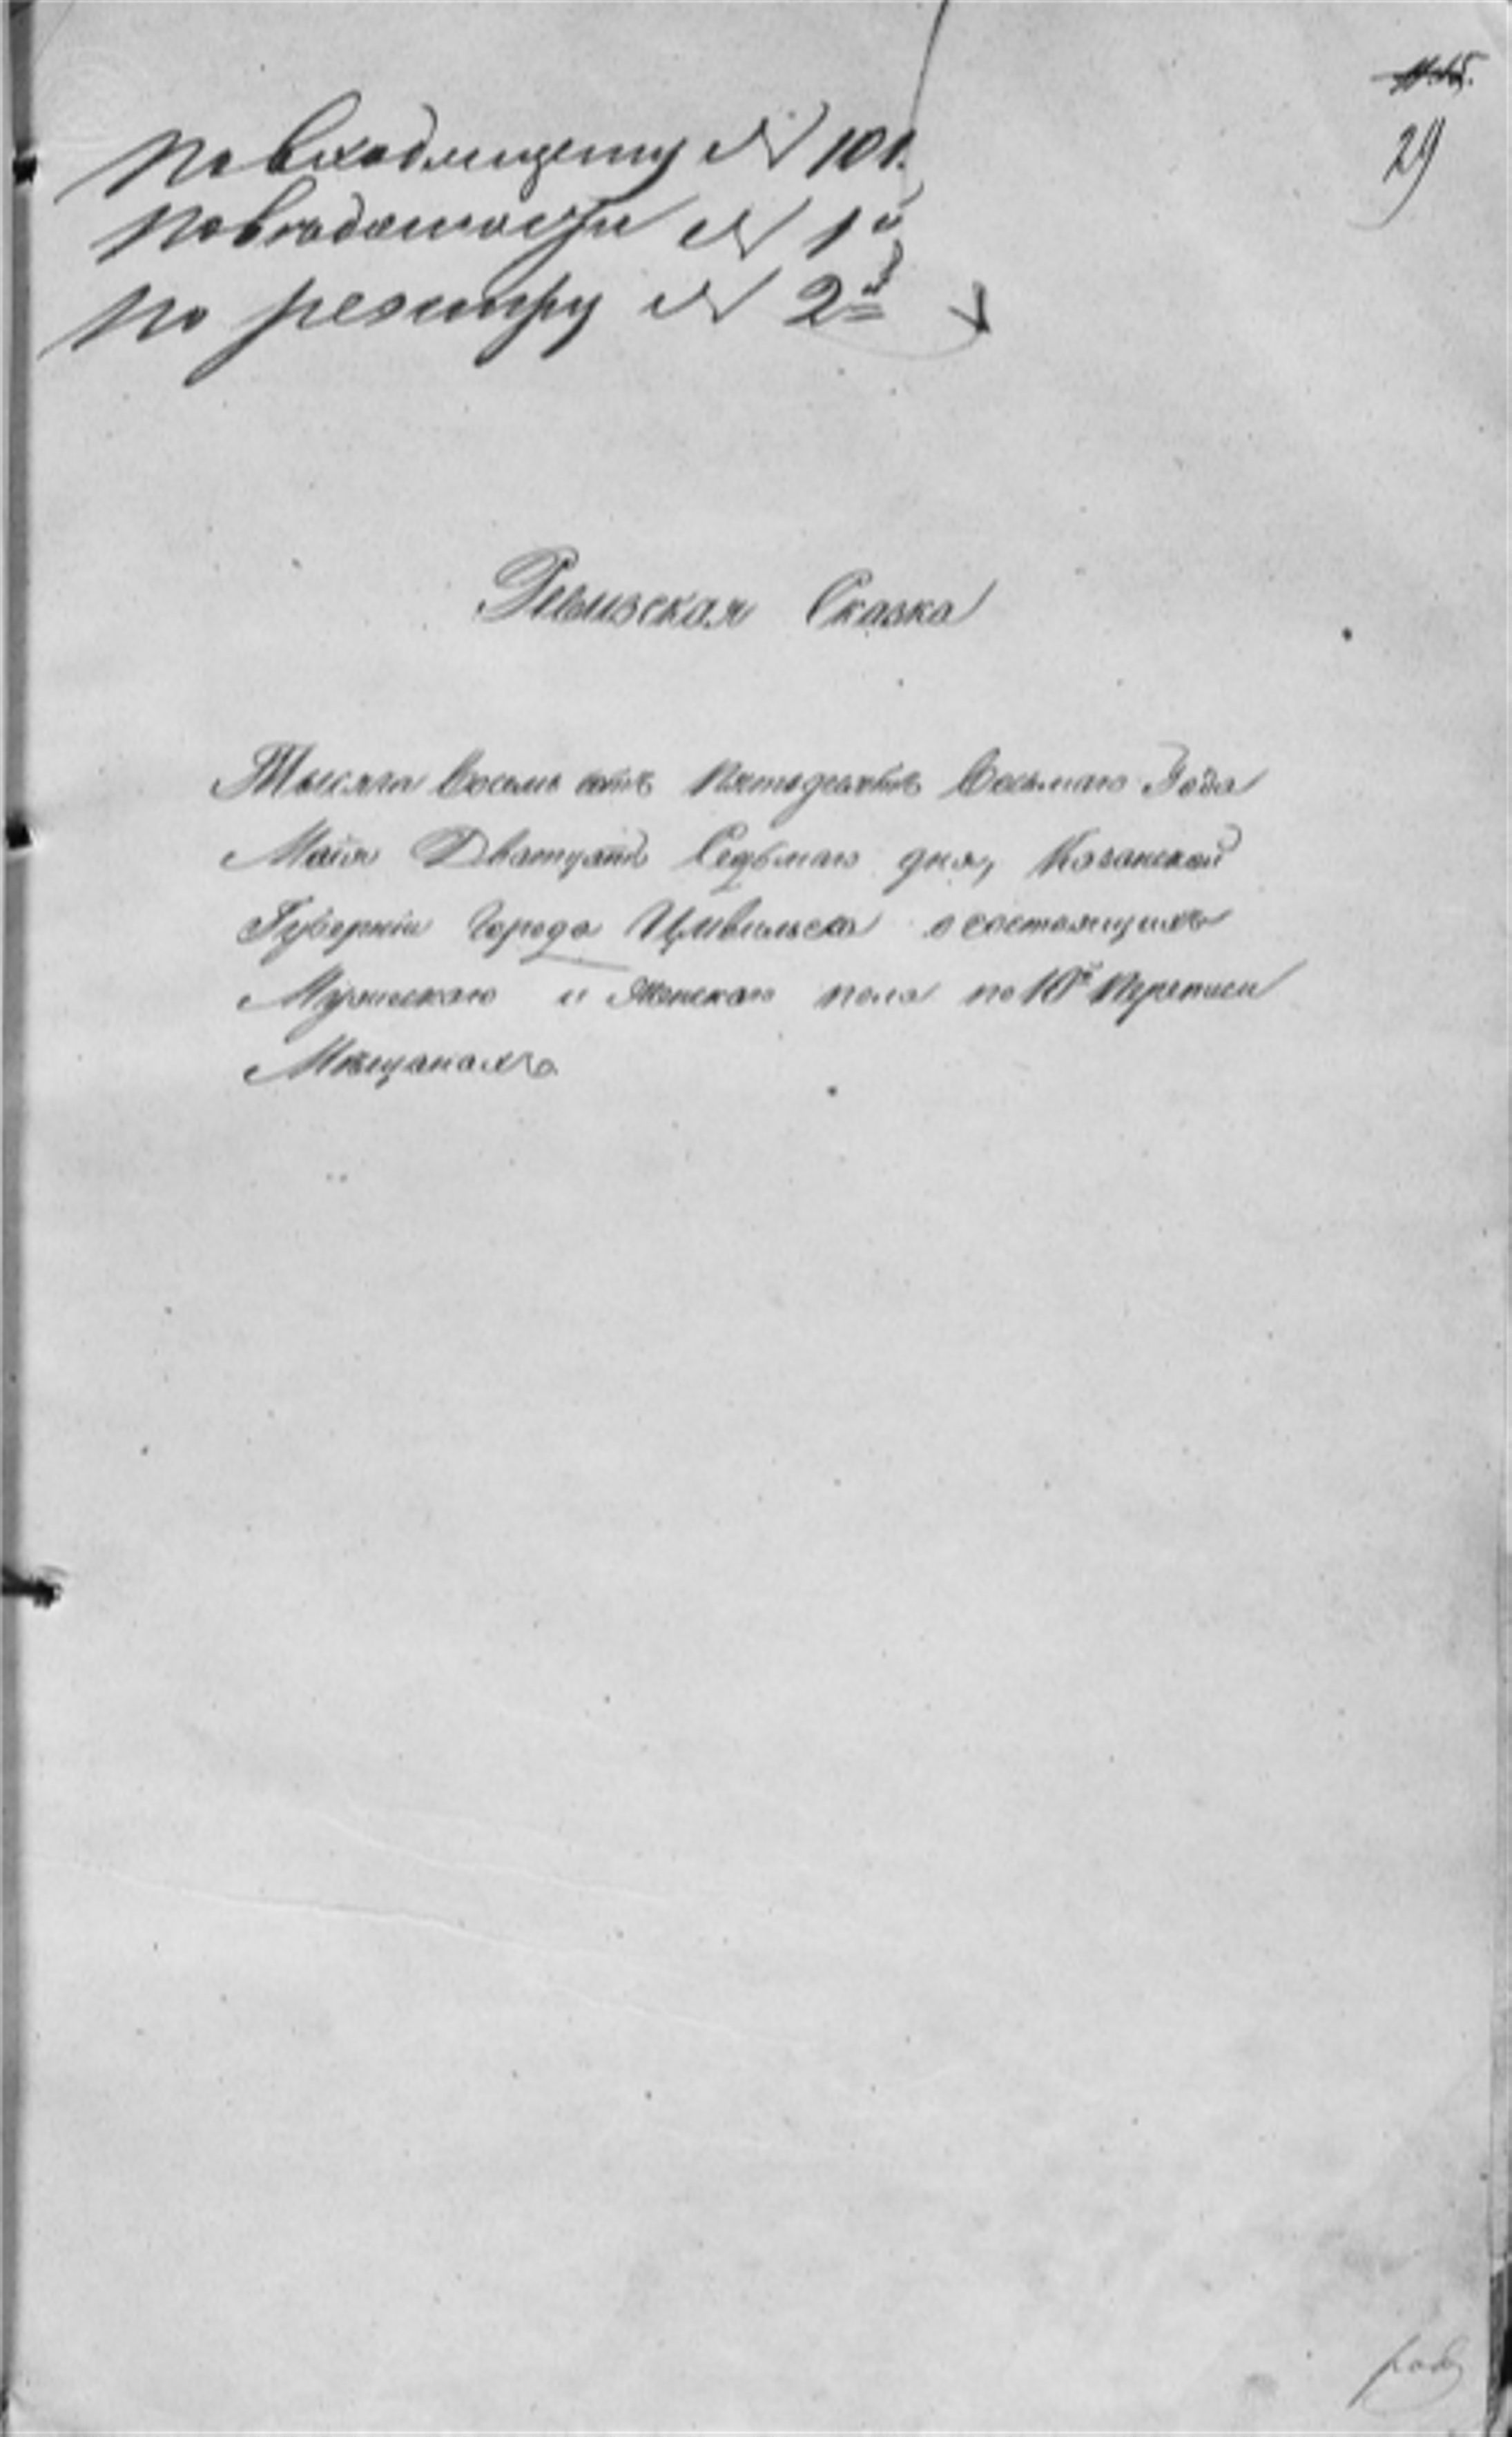 29
По входящему № 101.
По ведомости № 1й
По реэстру № 2й
Ревизская Сказка
Тысяча Восемь сотъ Пятьдесятъ Восьмаго Года
Майя Дватцать Седьмаго дня, Казанской
Губерніи города Цивильска о состоящихъ
Мужескаго и Женскаго пола по 10й Переписи
Мѣщанахъ